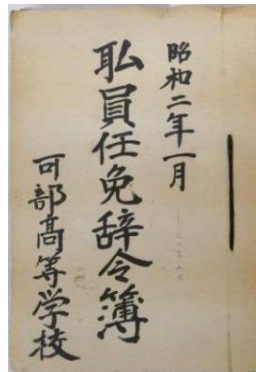 昭和二年一月
耺員任免辞令簿
可部高等学校